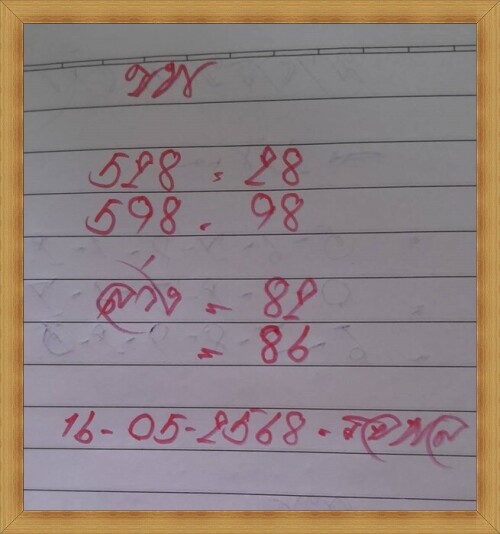 528 . 28
598 . 98
ล่าง = 82
= 86
16-05-2568.